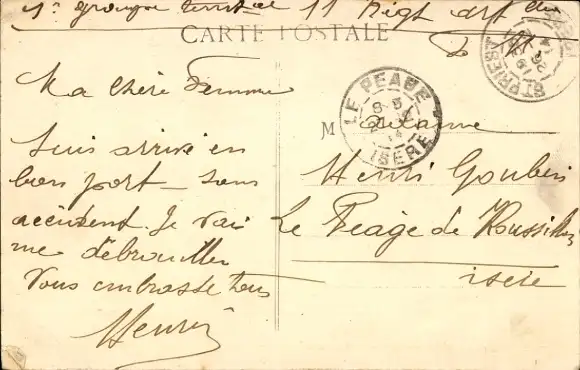 groupe territ al 11 Regt art
CARTE POSTALE
Ma Chère Femme
Suis arrivé en
bon port sans
accident. Je vai
me débrouiller
Vous embrasse tous
Henri
LE PEAGE
ISERE
ST PRIEST
M adame
Henri Goubin
Le Peage de Roussillon
isere